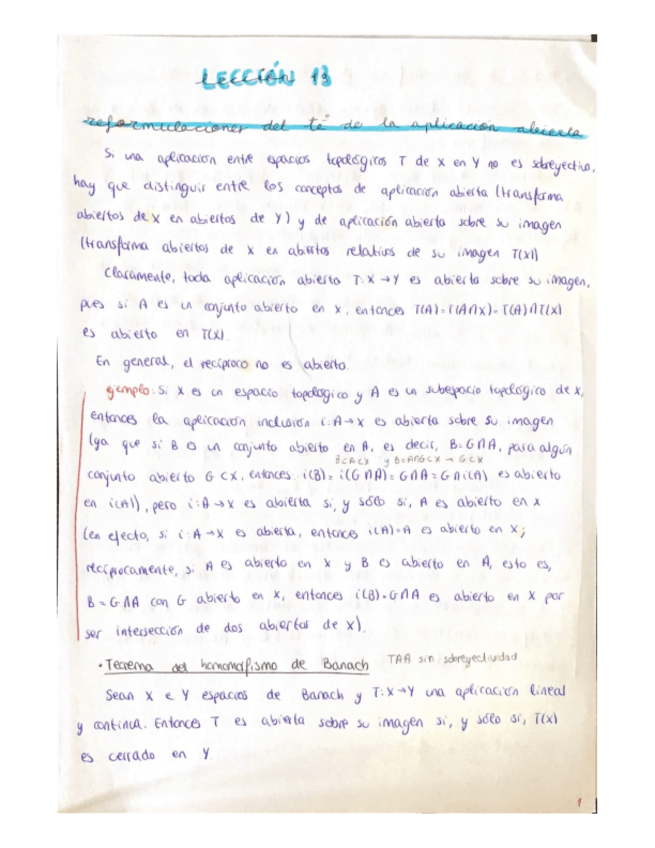 LECCIÓN 13
reformulaciones del tª de la aplicación abierta
Si una aplicación entre espacios topológicos T de X en Y no es sobreyectiva,
hay que distinguir entre los conceptos de aplicación abierta (transforma
abiertos de X en abiertos de Y) y de aplicación abierta sobre su imagen
(transforma abiertos de X en abiertos relativos de su imagen T(X))
Claramente, toda aplicación abierta T:X→Y es abierta sobre su imagen,
pues si A es un conjunto abierto en X, entonces T(A)=T(A∩X)=T(A)∩T(X)
es abierto en T(X).
En general, el recíproco no es abierto.
ejemplo: Si X es un espacio topológico y A es un subespacio topológico de X,
entonces la aplicación inclusión i:A→X es abierta sobre su imagen
(ya que si B es un conjunto abierto en A, es decir, B=G∩A, para algún
B⊂A⊂X y B=A∩G⊂X → G⊂X
conjunto abierto G⊂X, entonces i(B)=i(G∩A)=G∩A=G∩i(A) es abierto
en i(A)), pero i:A→X es abierta si, y sólo si, A es abierto en X
(en efecto, si i:A→X es abierta, entonces i(A)=A es abierto en X;
recíprocamente, si A es abierto en X y B es abierto en A, esto es,
B=G∩A con G abierto en X, entonces i(B)=G∩A es abierto en X por
ser intersección de dos abiertos de X).
· Teorema del homomorfismo de Banach TAA sin sobreyectividad
Sean X e Y espacios de Banach y T:X→Y una aplicación lineal
y continua. Entonces T es abierta sobre su imagen si, y sólo si, T(X)
es cerrado en Y.
1